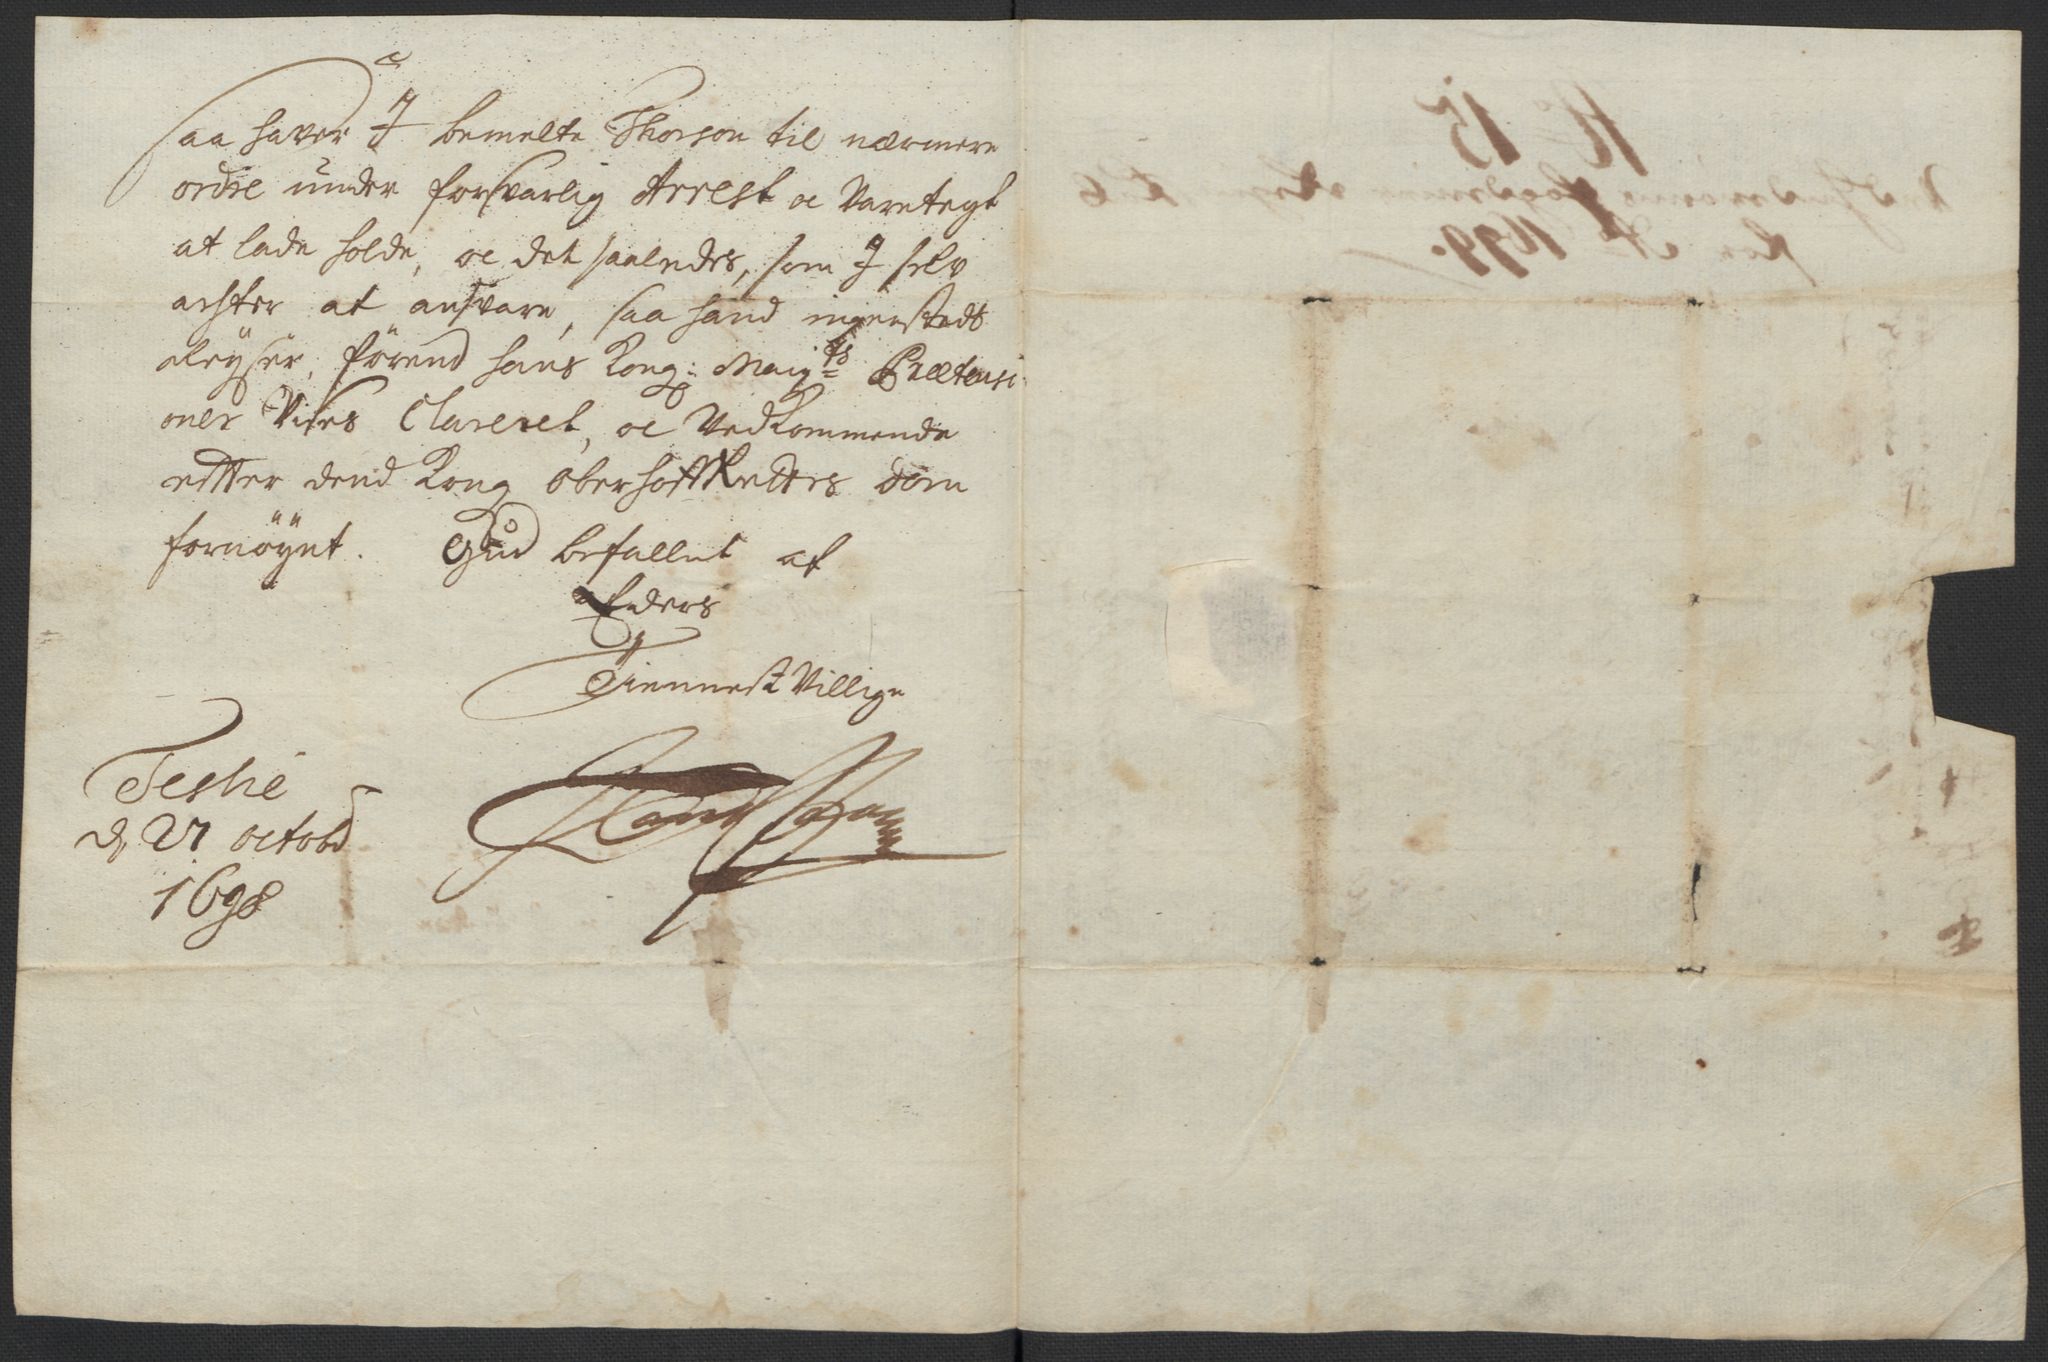 saa hafver I bemelte Thorson til nærmere
ordre under forsvarlig Arrest oc Varetegt
at lade holde, oc det saaledes, som I self
achter at ansvare, saa hand ingenstedts
aleyser, förend hans Kong: May:ts Prætensi
oner vises Clareret, oc Vedkommende
effter dend Kong oberhoffRettes dom
fornöyet. Gud befallet af
Eders
Tiennest Villige
d 27 octobr
1698
No 15
1699.